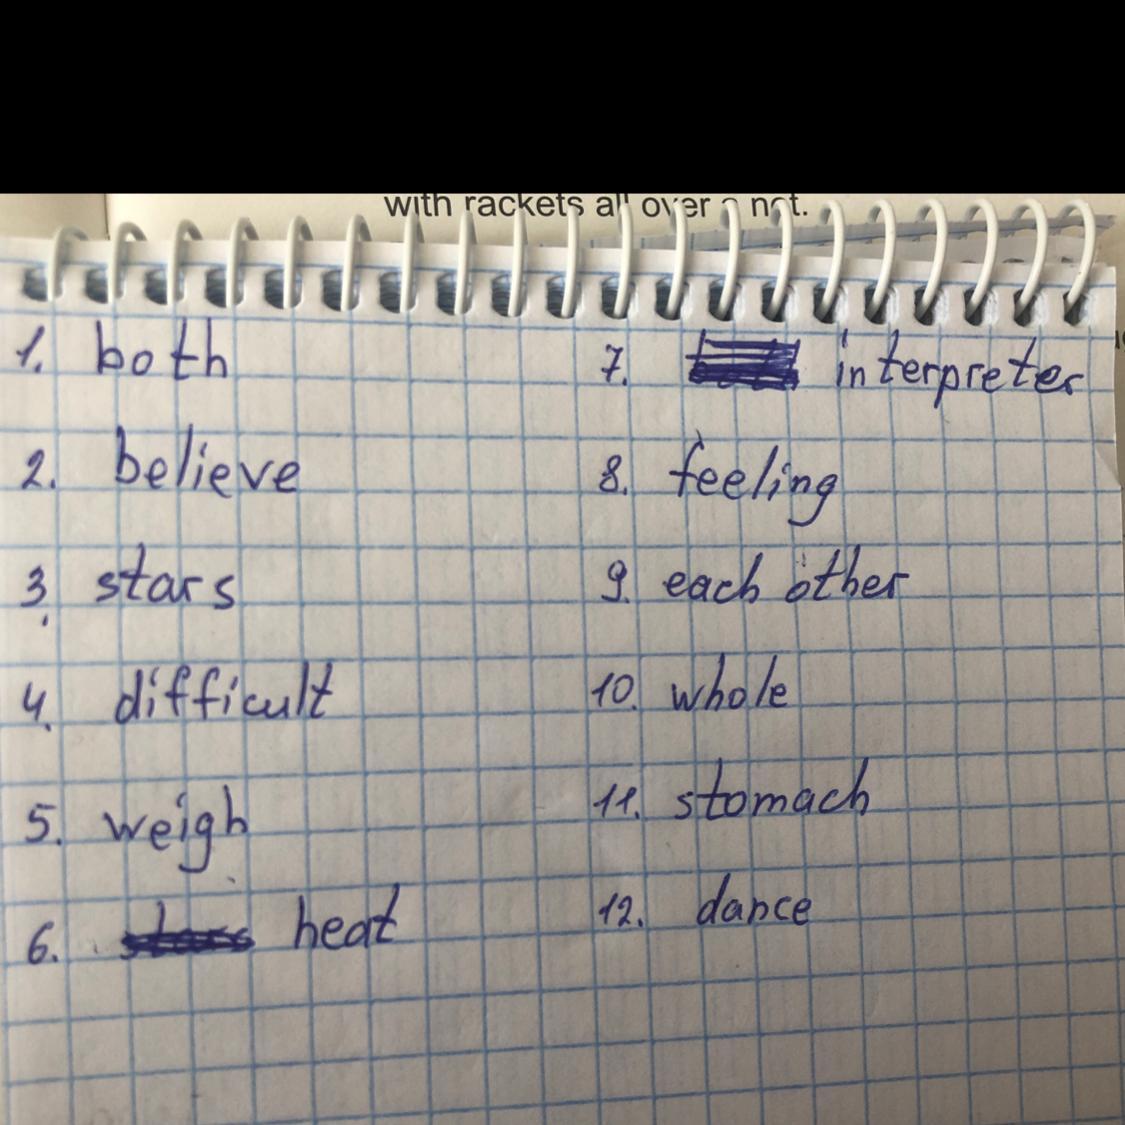 with rackets all over a net.
1. both
2. believe
3. stars
4. difficult
5. weigh
6. heat
7. interpreter
8. feeling
9. each other
10. whole
11. stomach
12. dance